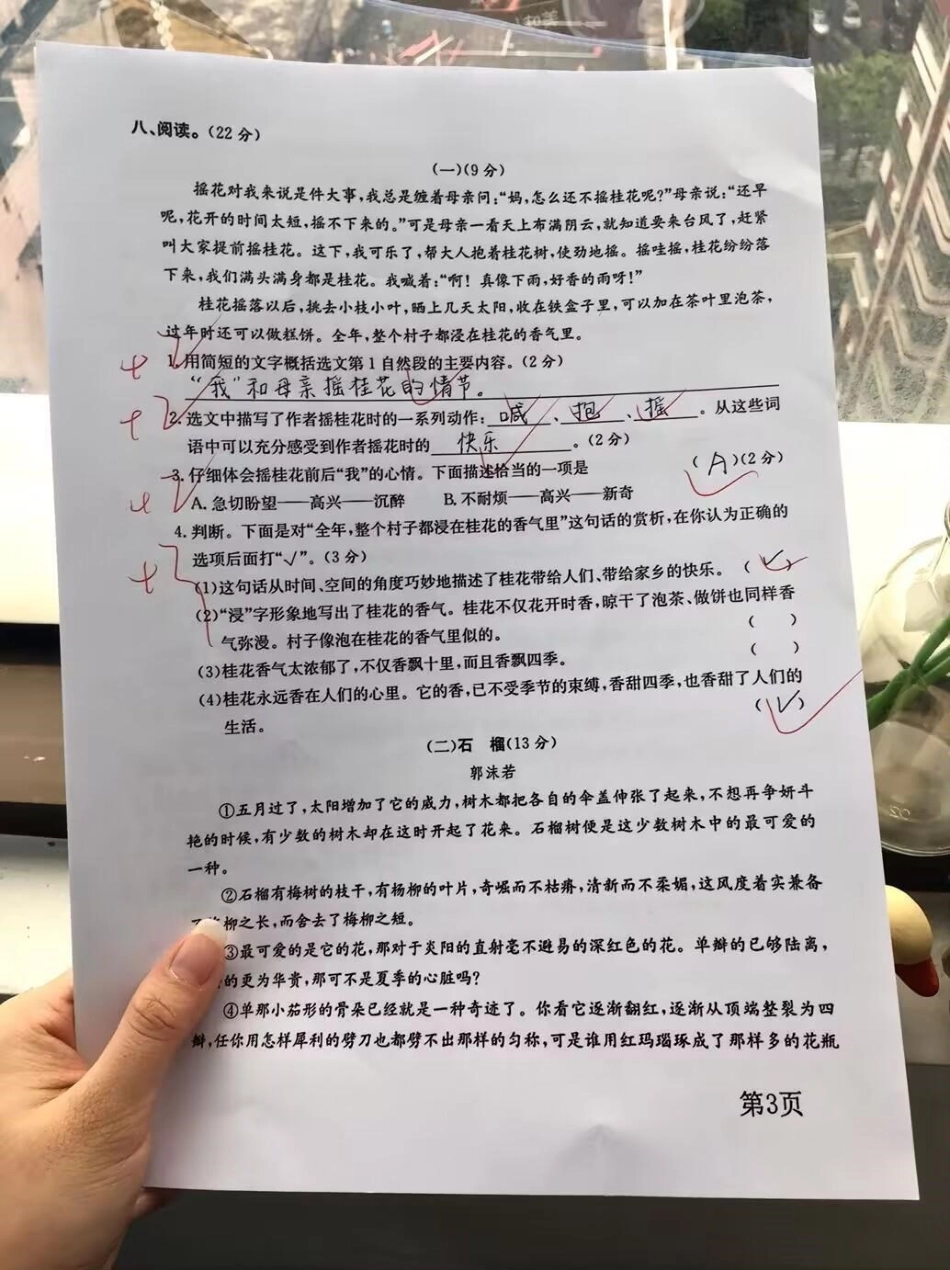 八、阅读。(22 分)
(一)(9 分)
摇花对我来说是件大事,我总是缠着母亲问:“妈,怎么还不摇桂花呢?”母亲说:“还早
呢,花开的时间太短,摇不下来的。”可是母亲一看天上布满阴云,就知道要来台风了,赶紧
叫大家提前摇桂花。这下,我可乐了,帮大人抱着桂花树,使劲地摇。摇哇摇,桂花纷纷落
下来,我们满头满身都是桂花。我喊着:“啊! 真像下雨,好香的雨呀!”
桂花摇落以后,挑去小枝小叶,晒上几天太阳,收在铁盒子里,可以加在茶叶里泡茶,
过年时还可以做糕饼。全年,整个村子都浸在桂花的香气里。
1.用简短的文字概括选文第1自然段的主要内容。(2 分)
“我”和母亲摇桂花的情节。
2.选文中描写了作者摇桂花时的一系列动作:喊、抱、摇。从这些词
语中可以充分感受到作者摇花时的快乐。(2 分)
3.仔细体会摇桂花前后“我”的心情。下面描述恰当的一项是 (A)(2 分)
A.急切盼望——高兴——沉醉 B.不耐烦——高兴——新奇
4.判断。下面是对“全年,整个村子都浸在桂花的香气里”这句话的赏析,在你认为正确的
选项后面打“√”。(3 分)
(1)这句话从时间、空间的角度巧妙地描述了桂花带给人们、带给家乡的快乐。 (√)
(2)“浸”字形象地写出了桂花的香气。桂花不仅花开时香,晾干了泡茶、做饼也同样香
气弥漫。村子像泡在桂花的香气里似的。 ( )
(3)桂花香气太浓郁了,不仅香飘十里,而且香飘四季。 ( )
(4)桂花永远香在人们的心里。它的香,已不受季节的束缚,香甜四季,也香甜了人们的
生活。 (√)
(二)石 榴(13 分)
郭沫若
①五月过了,太阳增加了它的威力,树木都把各自的伞盖伸张了起来,不想再争妍斗
艳的时候,有少数的树木却在这时开起了花来。石榴树便是这少数树木中的最可爱的
一种。
②石榴有梅树的枝干,有杨柳的叶片,奇崛而不枯瘠,清新而不柔媚,这风度着实兼备
柳之长,而舍去了梅柳之短。
③最可爱的是它的花,那对于炎阳的直射毫不避易的深红色的花。单瓣的已够陆离,
的更为华贵,那可不是夏季的心脏吗?
④单那小茄形的骨朵已经就是一种奇迹了。你看它逐渐翻红,逐渐从顶端整裂为四
瓣,任你用怎样犀利的劈刀也都劈不出那样的匀称,可是谁用红玛瑙琢成了那样多的花瓶
第3页